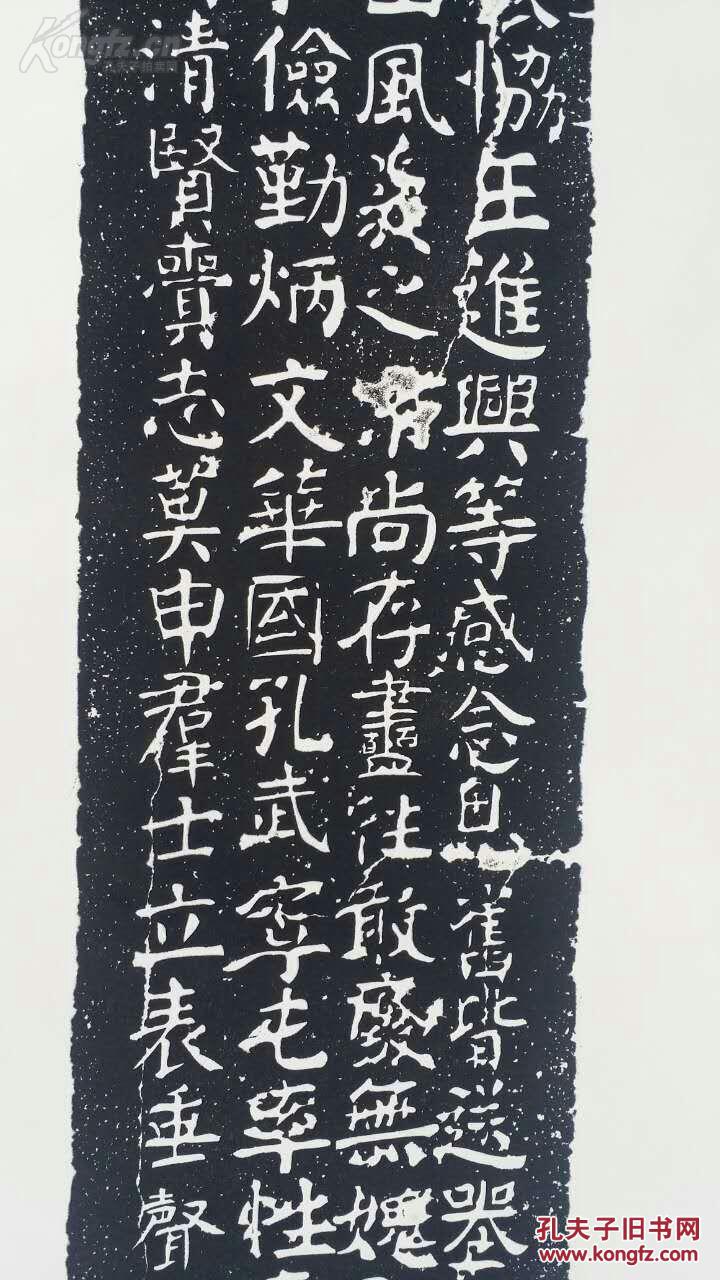 恊王進興等感念舊皆送器
風之尚存盡往敢廢無愧
儉勤炳文華國孔武寧屯率性
清賢賷志莫申羣士立表垂聲
Kongfz.com
孔夫子旧书网
www.kongfz.com